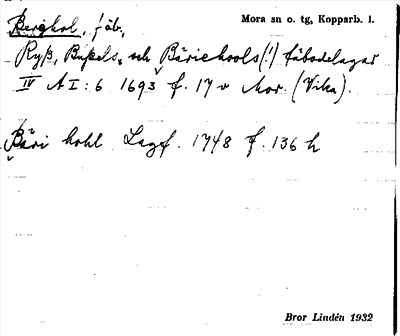 Bergkol, fäb., Mora sn o. tg, Kopparb. l.
Ryß, Bußels, och Bäriekools (!) fäbodelagar
IV A I: 6 1693 f. 17 v Mor. (Vika).
Bäri kohl Lagf. 1748 f. 136 h
Bror Lindén 1932